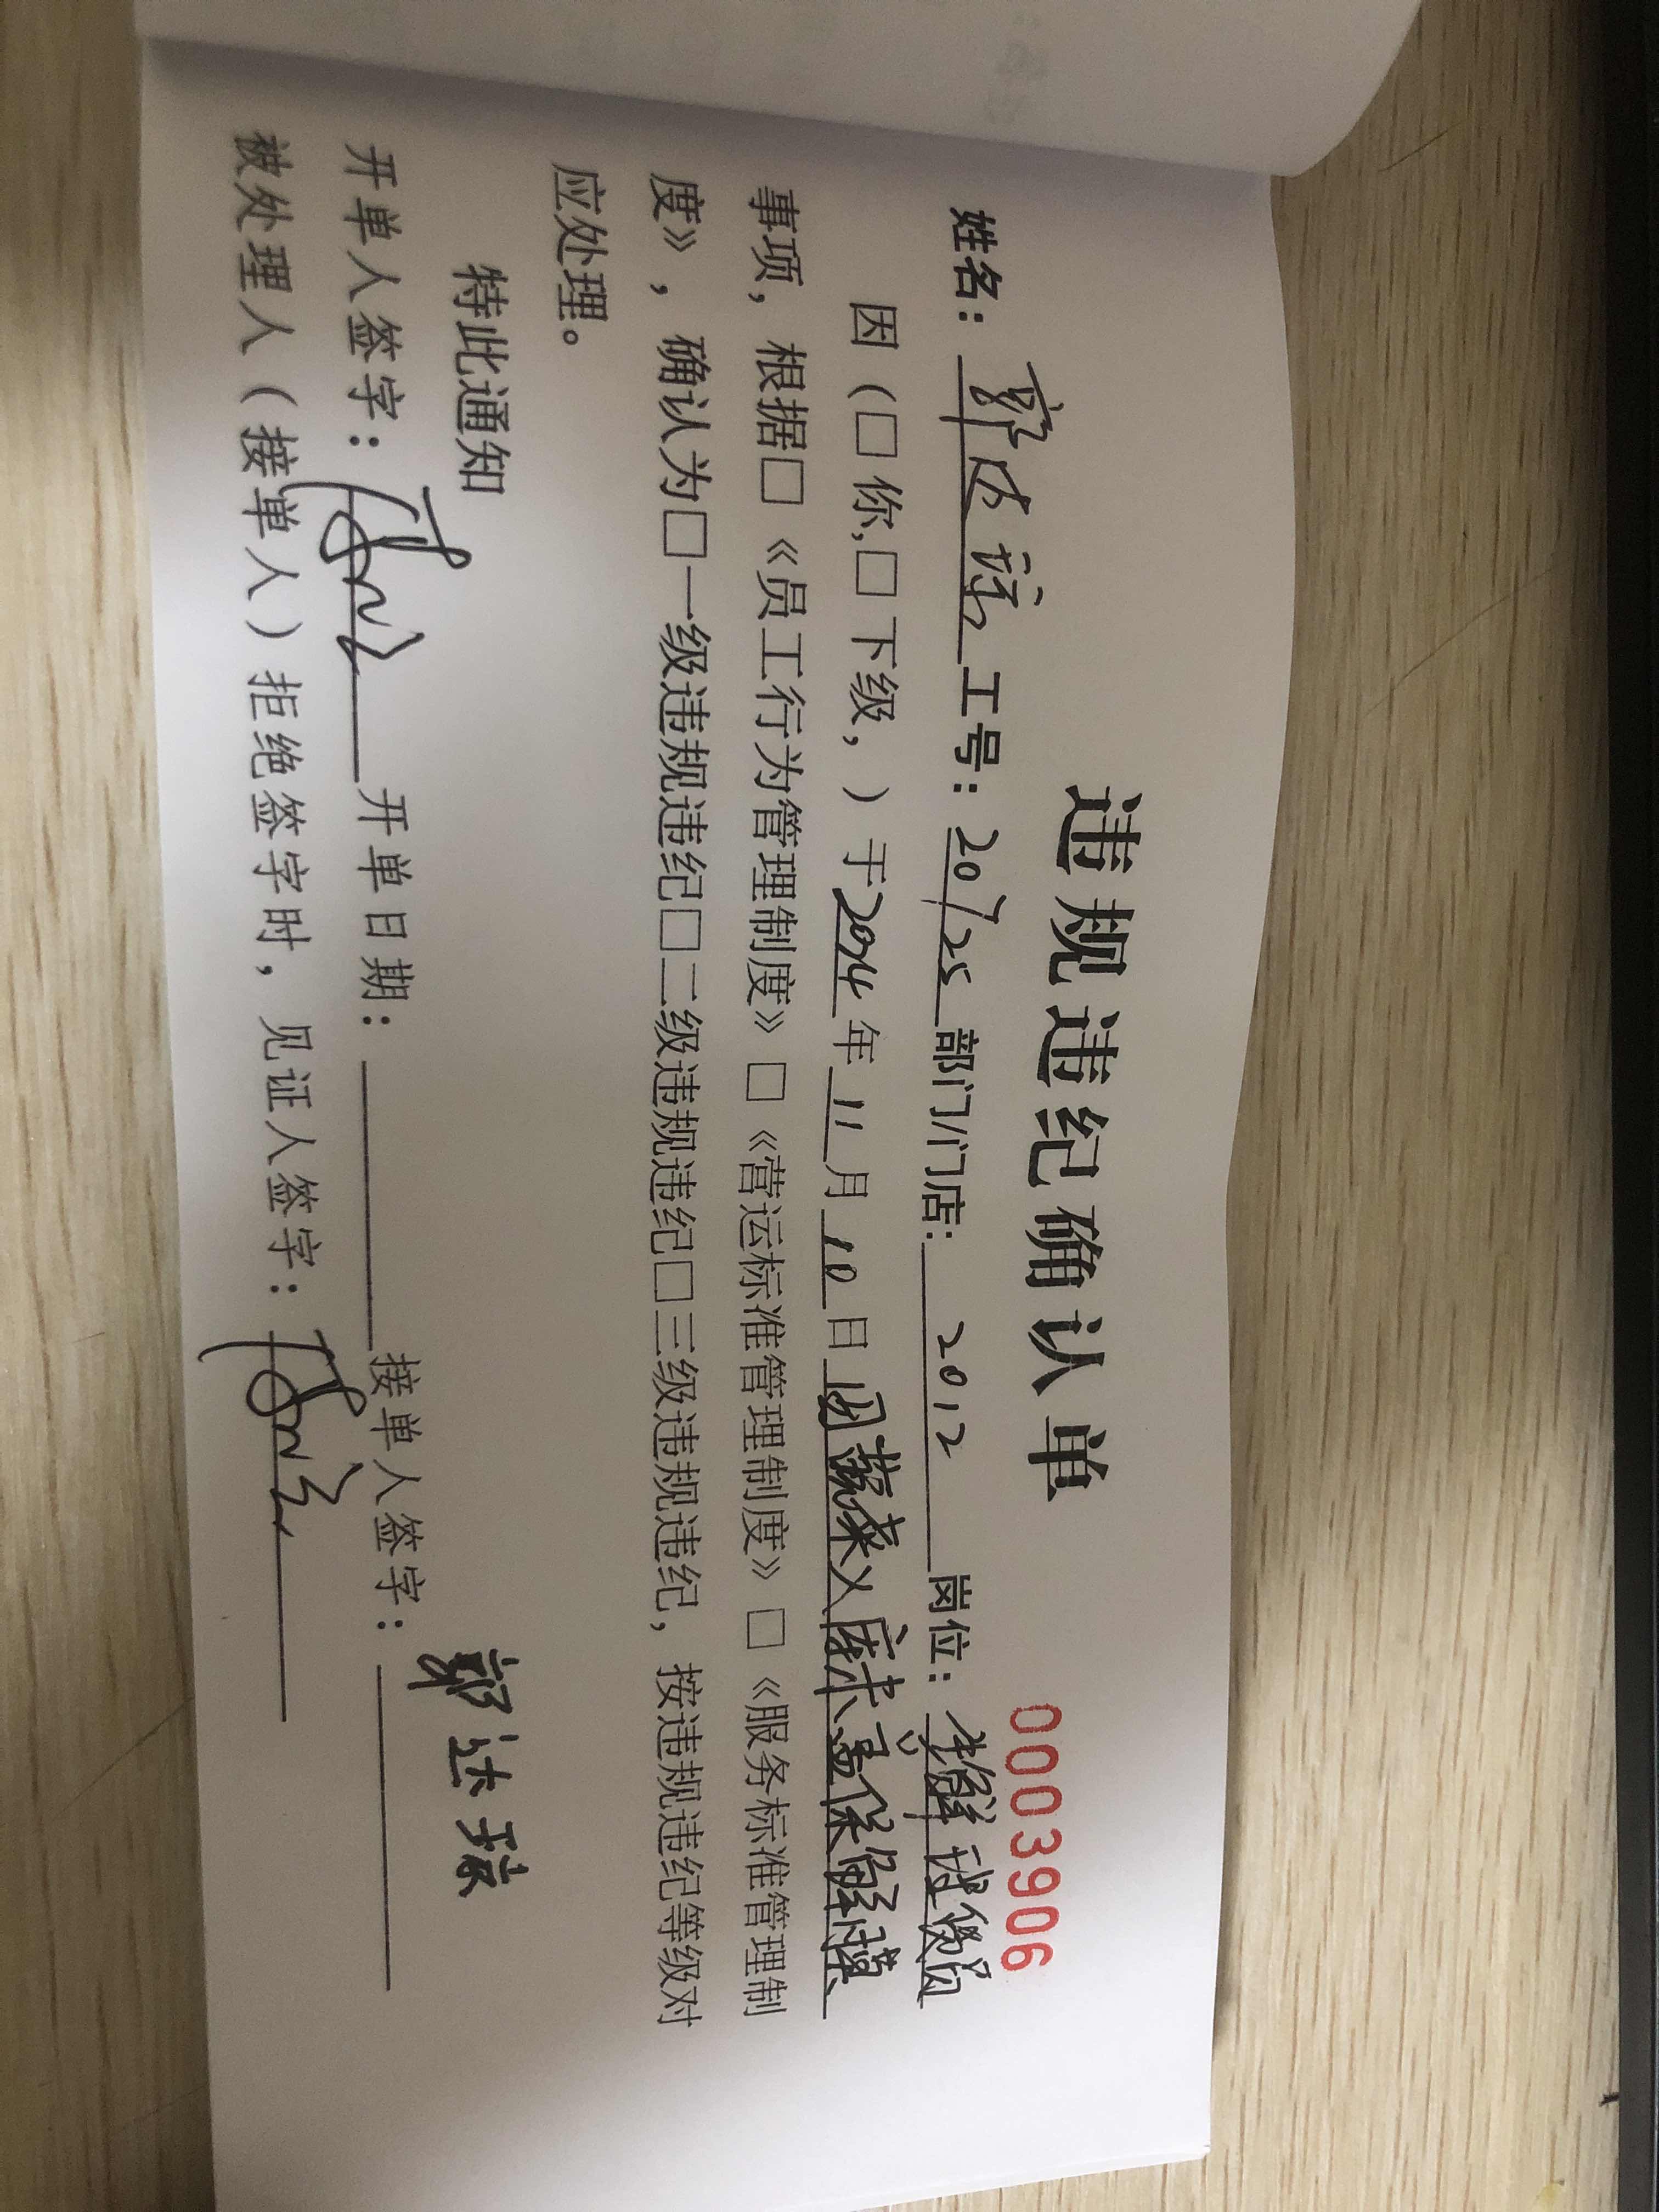 违规违纪确认单
0003906
姓名：郭达琼工号：20725部门/门店：2012岗位：生鲜 员
因（□你,□下级，）于2024年11月10日因蔬菜 保
事项，根据□《员工行为管理制度》□《营运标准管理制度》□《服务标准管理制
度》，确认为□一级违规违纪□二级违规违纪□三级违规违纪，按违规违纪等级对
应处理。
特此通知
开单人签字：开单日期：接单人签字：郭达琼
被处理人（接单人）拒绝签字时，见证人签字：